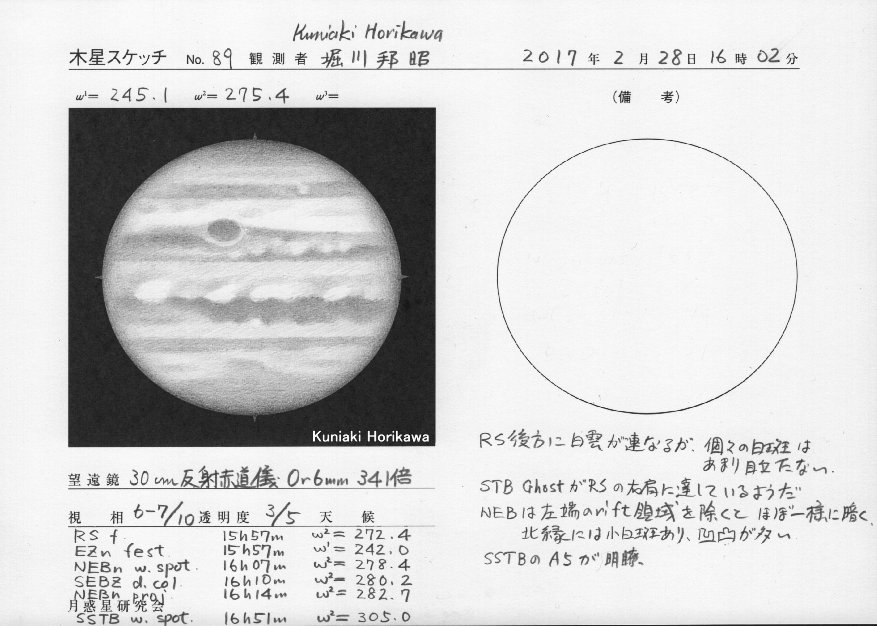 Kuniaki Horikawa
木星スケッチ No. 89 観測者 堀川邦昭 2017年2月28日16時02分
ω¹= 245.1 ω²= 275.4 ω³=
(備 考)
Kuniaki Horikawa
RS後方に白雲が連なるが、個々の白斑は
あまり目立たない.
STB GhostがRSの右肩に達しているようだ
NEBは左端のrift領域を除くと ほぼ一様に暗く、
北縁には小白斑あり、凹凸が多い
SSTBのA5が明瞭、
望遠鏡 30cm反射赤道儀 Or6mm 341倍
視 相 6-7/10 透明度 3/5 天 候
RS f. 15h57m ω²= 272.4
EZn fest 15h57m ω¹= 242.0
NEBn w. spot. 16h07m ω²= 278.4
SEBZ d. col. 16h10m ω²= 280.2
NEBn proj 16h14m ω²= 282.7
月惑星研究会
SSTB w. spot. 16h51m ω²= 305.0